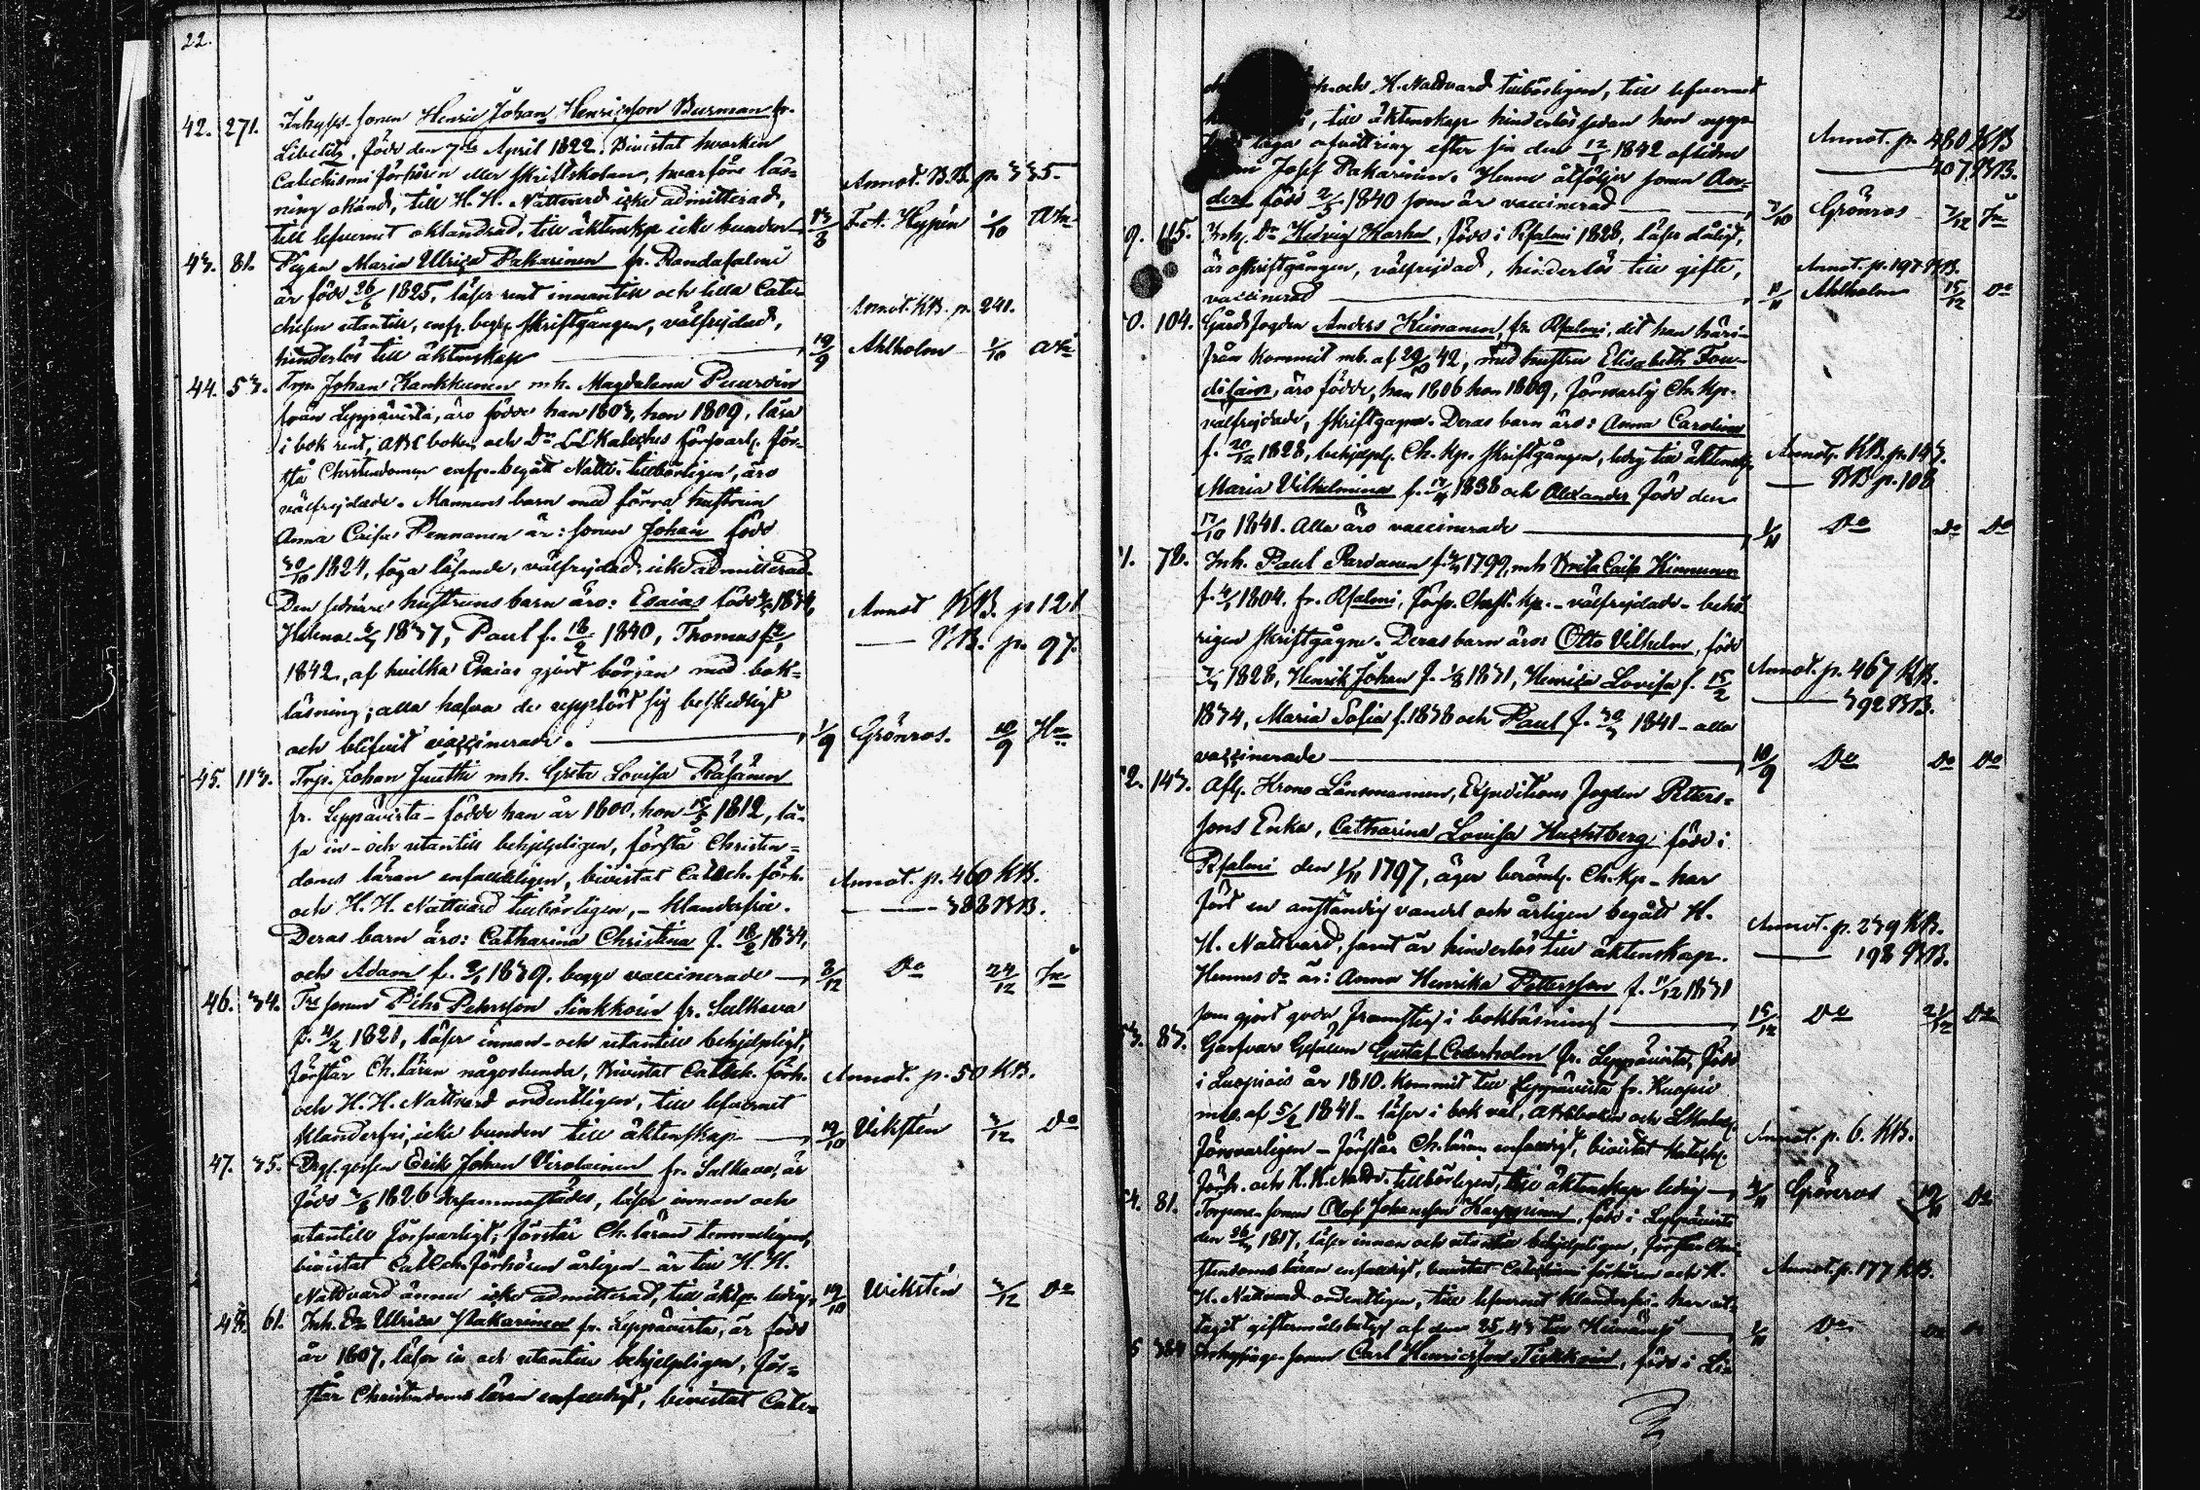 22.
42. 271. Inhyses-sonen Henric Johan Henricsson Burman fr.
Libelitz, född den 7de April 1822. Bivistat hvarken
Catechismi förhören eller skriftskolan, hvarföre läs-
ning okänd, till H. H. Nattvard icke admitterad,
till lefvernet oklandrad, till äktenskap icke bunden
Annot. B.B. p. 335.
43. 81. Pigan Maria Ulrica Pakarinen fr. Randasalmi
är född 26/ 1825, läser rent innantill och lilla Cate-
chesen utantill, enf. begr. skriftgången, välfrejdad,
hinderlös till äktenskap
Annot. KB. p. 241.
19/9 Ahlholm 1/10
44. 53. Trp. Johan Kankkunen mh. Magdalena Puurtin
från Leppävirta, äro födde han 1803, hon 1809, läsa
i bok rent, ABC boken och Do LL Kateches försvarl. för-
stå Christendomen enf. begått Nattv. tillbörligen, äro
välfrejdade. Mannens barn med förra hustrun
Anna Caisa Pennanen är: sonen Johan född
30/10 1824, föga läsande, välfrejdad, icke admitterad
Den sednare hustruns barn äro: Esaias född 1834,
Helena 1837, Paul f. 18/2 1840, Thomas f.
1842, af hvilka Esaias gjort början med bok-
läsning; alla hafva de uppfört sig beskedligt
och blifvit vaccinerade.
Annot KB. p 121
— BB. p. 97.
1/9 Grönros. 10/9
45. 113. Trp. Johan Juuthi mh. Greta Lovisa Räsänen
fr. Leppävirta – födde han år 1800, hon 1812, lä-
sa in- och utantill behjelpligen, förstå Christen-
doms läran enfaldeligen, bivistat Catech. förh.
och H. H. Nattvard tillbörligen, – klanderfria.
Deras barn äro: Catharina Christina f. 18/2 1834,
och Adam f. 1839. begge vaccinerade
Annot. p. 460 KB.
— 388 BB.
8/12 Do 24/12
46. 34. Trp sonen Pehr Pehrsson Sinkkoin fr. Sulkava
f. 4/2 1821, läser innan- och utantill behjelpligt,
förstår Ch. läran någorlunda, bivistat Catech. förh.
och H. H. Nattvard ordentligen, till lefvernet
klanderfri, icke bunden till äktenskap
Annot. p. 50 KB.
19/10 Vikstén 3/12 Do
47. 35. Erik Johan Virolainen fr. Sulkava, är
född 3/8 1826 dersammastädes, läser innan och
utantill försvarligt, förstår Ch. läran temmeligen,
bivistat Catech. förhören årligen – är till H. H.
Nattvard ännu icke admitterad, till äktp. ledig,
19/10 Wikstén 3/12 Do
48. 61. Inh. Do Ulrica Pakarinen fr. Leppävirta, är född
år 1807, läser in och utantill behjelpligen, för-
står Christendoms läran enfaldigt, bivistat Cate-
och H. Nattvard tillbörligen, till lefvernet
till äktenskap hinderlös sedan hon
laga afvittring efter sin den 12/ 1842 aflidna
Josef Pakarinen. Henne åtföljer sonen An-
ders född 2/3 1840 som är vaccinerad
Annot. p. 480 KB
— 407 BB.
7/10 Grönros 7/12
9. 115. Inh. Do Hedvig Karhu, född i Idsalmi 1828, läser dåligt,
är oskriftgången, välfrejdad, hinderlös till gifte,
vaccinerad
Annot. p. 197 KB.
Ahlholm 15/12 Do
0. 104. Gårdsfogden Anders Keinanen, fr. Idsalmi, dit han häri-
från kommit mb. af 42, med hustrun Elisabeth Tou-
äro födde, han 1806 hon 1809, försvarlig Ch. kp.
välfrejdade, skriftgagne. Deras barn äro: Anna Carolina
f. 20/12 1828, behjelpl. Ch. kp. skriftgången, ledig till äktensk.
Maria Vilhelmina f. 1838 och Alexander född den
17/10 1841. Alla äro vaccinerade
Annot. KB. p. 143.
— BB p. 108
Do Do Do
1. 78. Inh. Paul Partanen f. 1799, mh Brita Caisa Kinnunen
f. 1804. fr. Idsalmi, förs. Christ. kp. – välfrejdade – behö-
rigen skriftgågne. Deras barn äro: Otto Vilhelm, född
1828, Henrik Johan f. 1/8 1831, Henrica Lovisa f. 15/2
1834, Maria Sofia f. 1838 och Paul f. 1841 – alla
vaccinerade
Annot. p. 467 KB.
— 392 BB.
10/9 Do Do Do
2. 143. Afl. Krono Länsmannen, Expeditions fogden Peters-
sons Enka, Catharina Lovisa Huchtberg född i
Idsalmi den 1797, äger beröml. Ch. kp – har
fört en anständig vandel och årligen begått H.
H. Nattvard, samt är hinderlös till äktenskap.
Hennes dr är: Anna Henrika Pettersson f. 1831
som gjort goda framsteg i bokläsning
Annot. p. 239 KB.
— 198 BB.
15/12 Do 21/12 Do
3. 83. Garfvar Gesällen Gustaf Cederholm fr. Leppävirta, född
i Luopiois år 1810. Kommit till Leppävirta fr. Kuopio
mb. af 5/2 1841 – läser i bok väl, ABC boken och L Kateches
försvarligen – förstår Ch. läran enfaldigt, bivistat Katech.
förh. och H. H. Nattv. tillbörligen, till äktenskap ledig
Annot. p. 6. KB.
Grönros Do
4. 81. Torpare-sonen Olof Johansson Karppinen, född i Leppävirta
den 26/ 1817, läser innan och utantill behjelpligen, förstår Chri-
stendoms läran enfaldigt, bivistat Catechismi förhören och H.
H. Nattvard ordentligen, till lefvernet klanderfri – har ut-
tagit giftermålsbetyg af den 25/ 43 till
Annot. p. 177 KB.
Do
5 384 Inhysinge-sonen Carl Henricsson Tirkkoin, född i Li-